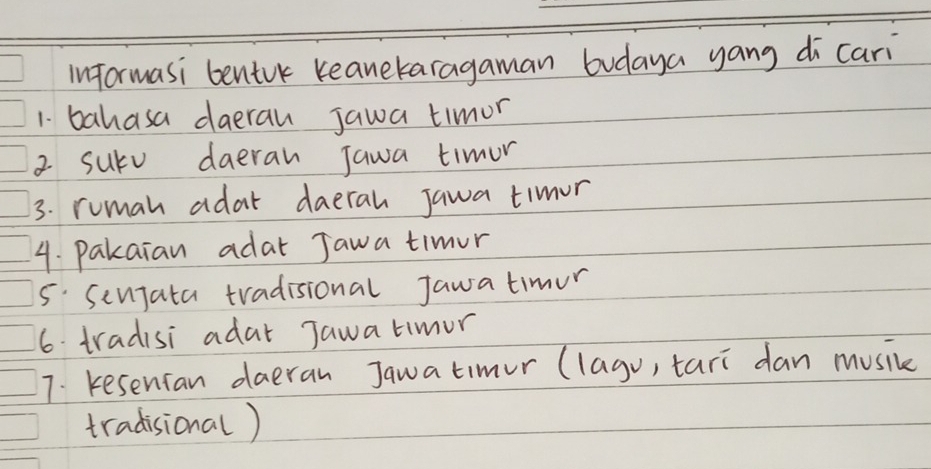 informasi bentuk keanekaragaman budaya yang di cari
1. bahasa daerah Jawa timur
2. suku daerah Jawa timur
3. rumah adat daerah Jawa timur
4. Pakaian adat Jawa timur
5. Senjata tradisional Jawa timur
6. tradisi adat Jawa timur
7. kesenian daerah Jawa timur (lagu, tari dan musik
tradisional)